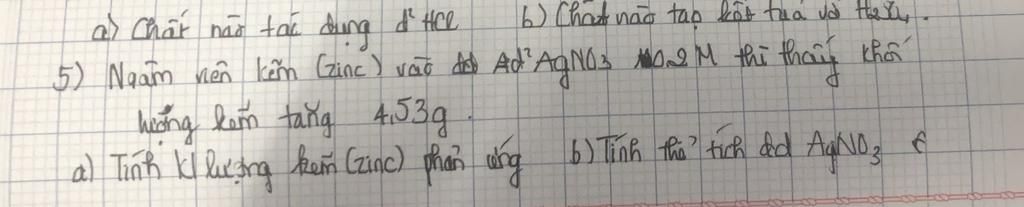 a) Chất nào tác dụng d² HCl b) Chất nào tạo kết tủa với
5) Ngâm viên kẽm (zinc) vào dd AgNO3 0.2 M thì thấy khối
lượng kẽm tăng 4,53g.
a) Tính kl lượng kẽm (zinc) phản ứng b) Tính thể tích dd AgNO3